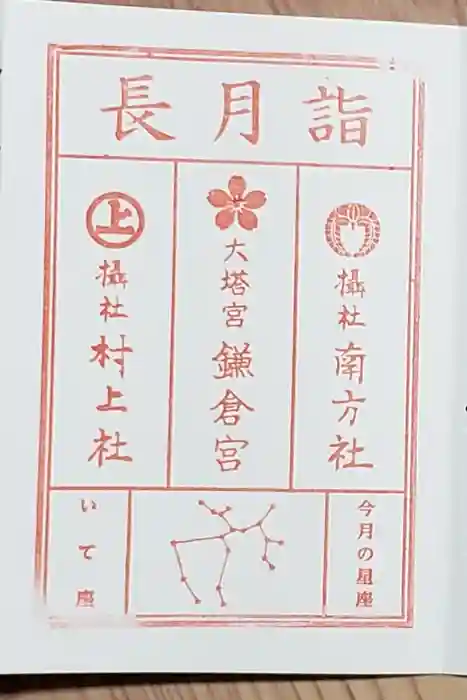 長月詣
摂社 南方社
大塔宮 鎌倉宮
上
摂社 村上社
今月の星座
いて座